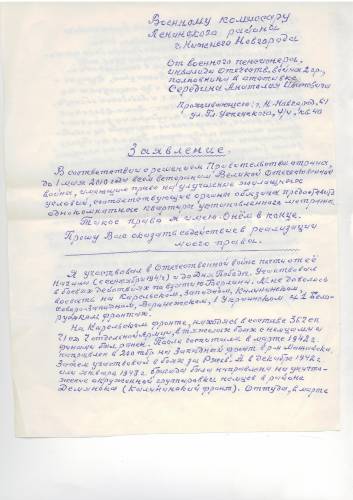 Военному комиссару
Ленинского района
г. Нижнего Новгорода
От военного пенсионера,
инвалида Отечеств. войны 2 гр.,
полковника в отставке
Середина Анатолия Ивановича
Проживающего: г. Н. Новгород, 41
ул. Гл. Успенского, 4/4, кв. 40
Заявление.
В соответствии с решением Правительства страны,
до 1 мая 2010 года всем ветеранам Великой Отечественной
войны, имеющие право на улучшение жилищных
условий, соответствующие органы обязаны предоставить
однокомнатные квартиры установленного метража
Такое право я имею.
Прошу Вас оказать содействие в реализации
моего права.
Я участвовал в Отечественной войне почти от её
начала и до дня Победы. Участвовал
в боевых действиях Берлина. Мне довелось
воевать на Карельском, Западном, Калининском,
Северо-Западном, Воронежском, 1 Украинском и 1 Бело-
русском фронтах.
На Карельском фронте, находясь в составе
71 сд 7 отдельной Армии, в тяжелых боях с немцами и
финнами был ранен. После госпиталя в марте 1942 г.
направлен в на Западный фронт в р-н
Затем участвовал в боях за Ржев. А в декабре 1942 г.
или январе 1943 г. бригада была направлена на уничто-
жение окружённой группировки немцев в районе
Демянска (Калининский фронт). Оттуда, в марте